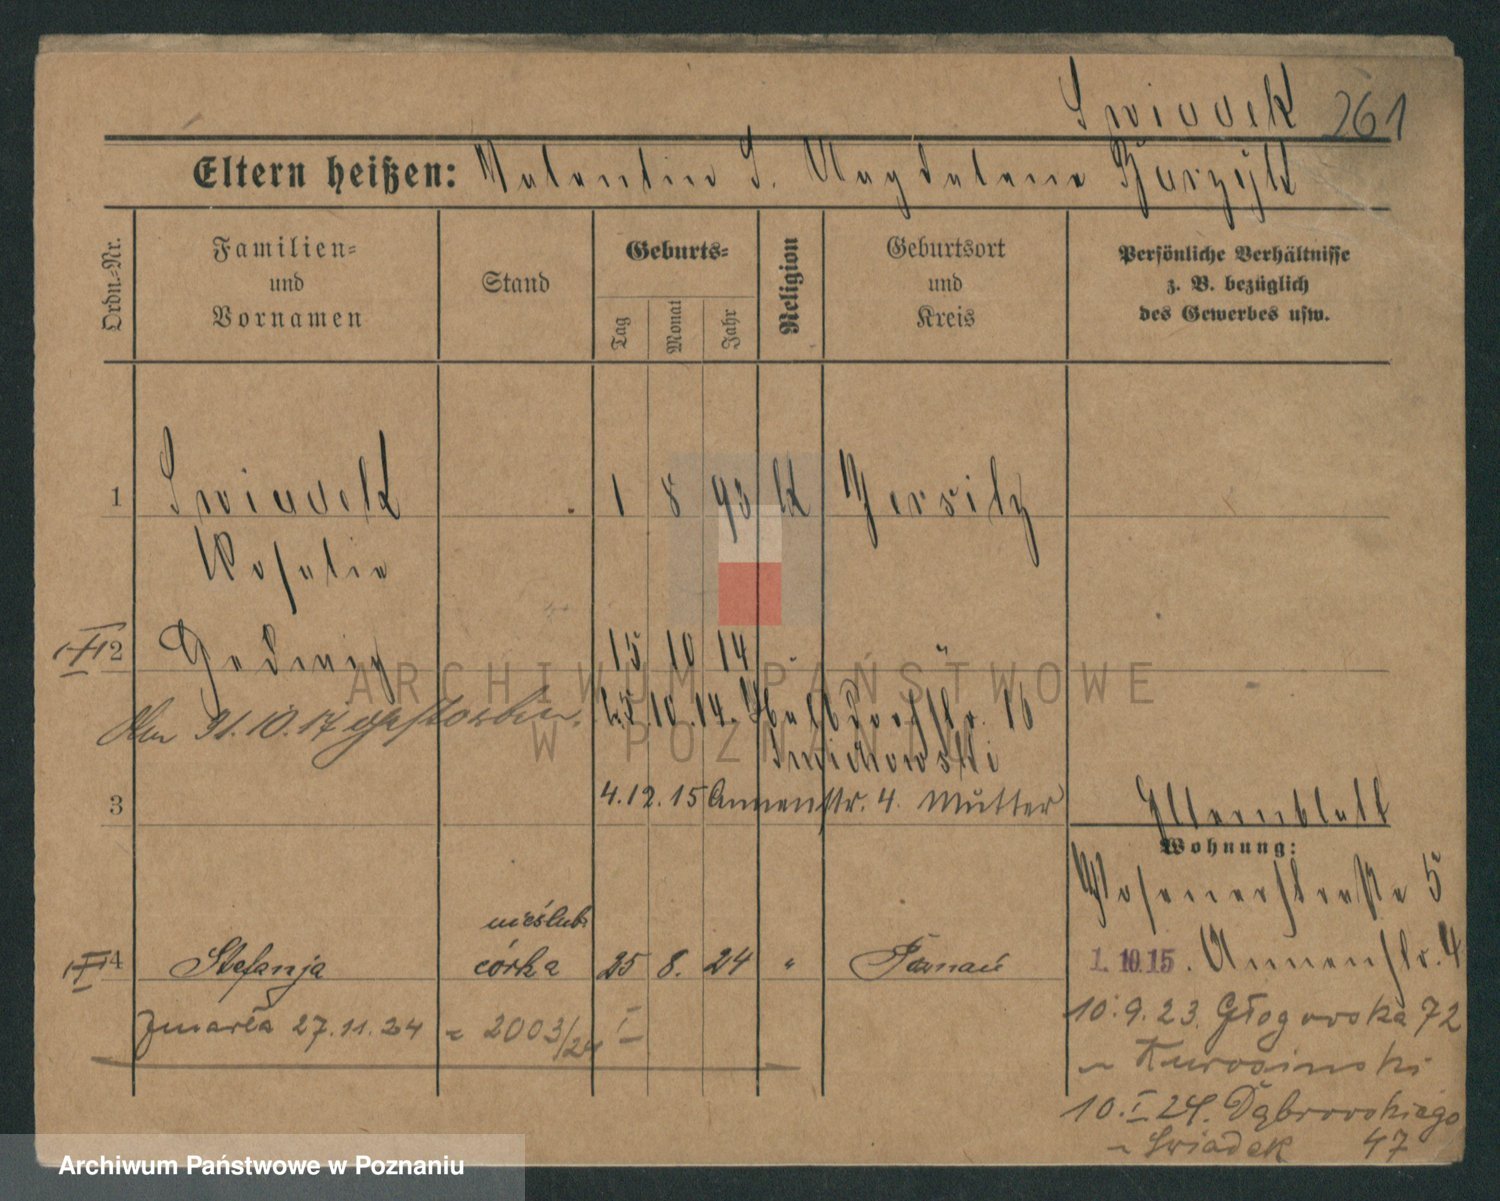 Swiadek 261
Eltern heißen: Valentin S. Magdalena
Ordn.-Nr.
Familien-
und
Vornamen
Stand
Geburts-
Tag
Monat
Jahr
Religion
Geburtsort
und
Kreis
Persönliche Verhältnisse
z. B. bezüglich
des Gewerbes usw.
1 Swiadek 1 8 93 K Jersitz
Rosalie
2 Hedwig 15 10 14 " "
Am 31.10.17 gestorben. 15.10.14. Halbdorfstr. 16
3 4.12.15 Annenstr. 4. Mutter
Elternblatt
Wohnung:
Posenerstraße 5
nieślub.
4 Stefanja córka 25 8. 24 " Poznań
1. 10. 15. Annenstr. 4
zmarła 27.11.24 2003/24 I
10.9.23. Głogowska 72
10.I 24. Dąbrowskiego
Swiadek 47
ARCHIWUM PAŃSTWOWE
W POZNANIU
Archiwum Państwowe w Poznaniu